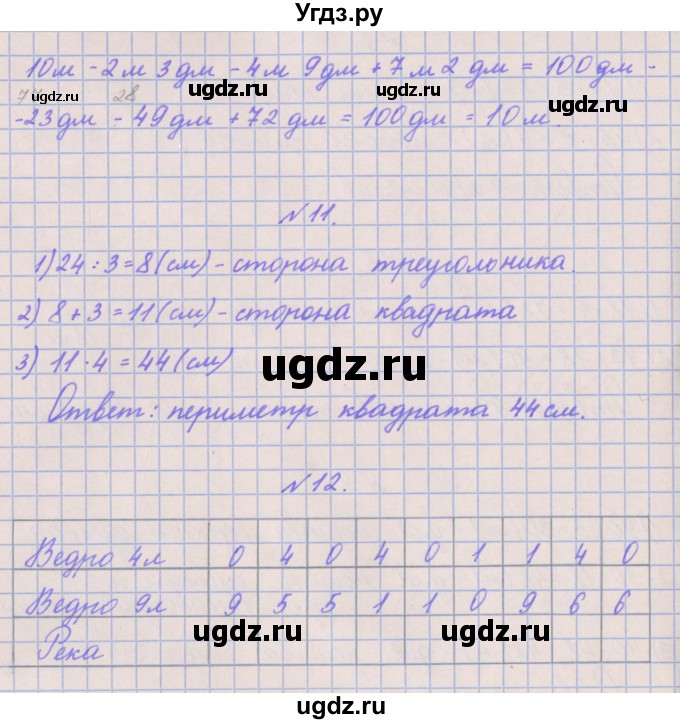 Угдз.ру
10м - 2м 3дм - 4м 9дм + 7м 2 дм = 100дм -
77 28
-23дм - 49дм + 72 дм = 100дм = 10м.
ugdz.ru ugdz.ru ugdz.ru ugdz.ru
№11.
1) 24 : 3 = 8 (см) - сторона треугольника.
2) 8 + 3 = 11 (см) - сторона квадрата
3) 11 · 4 = 44 (см)
ugdz.ru
Ответ: периметр квадрата 44 см.
№12.
Ведро 4л 0 4 0 4 0 1 1 4 0
Ведро 9л 9 5 5 1 1 0 9 6 6
ugdz.ru ugdz.ru
Река
ugdz.ru